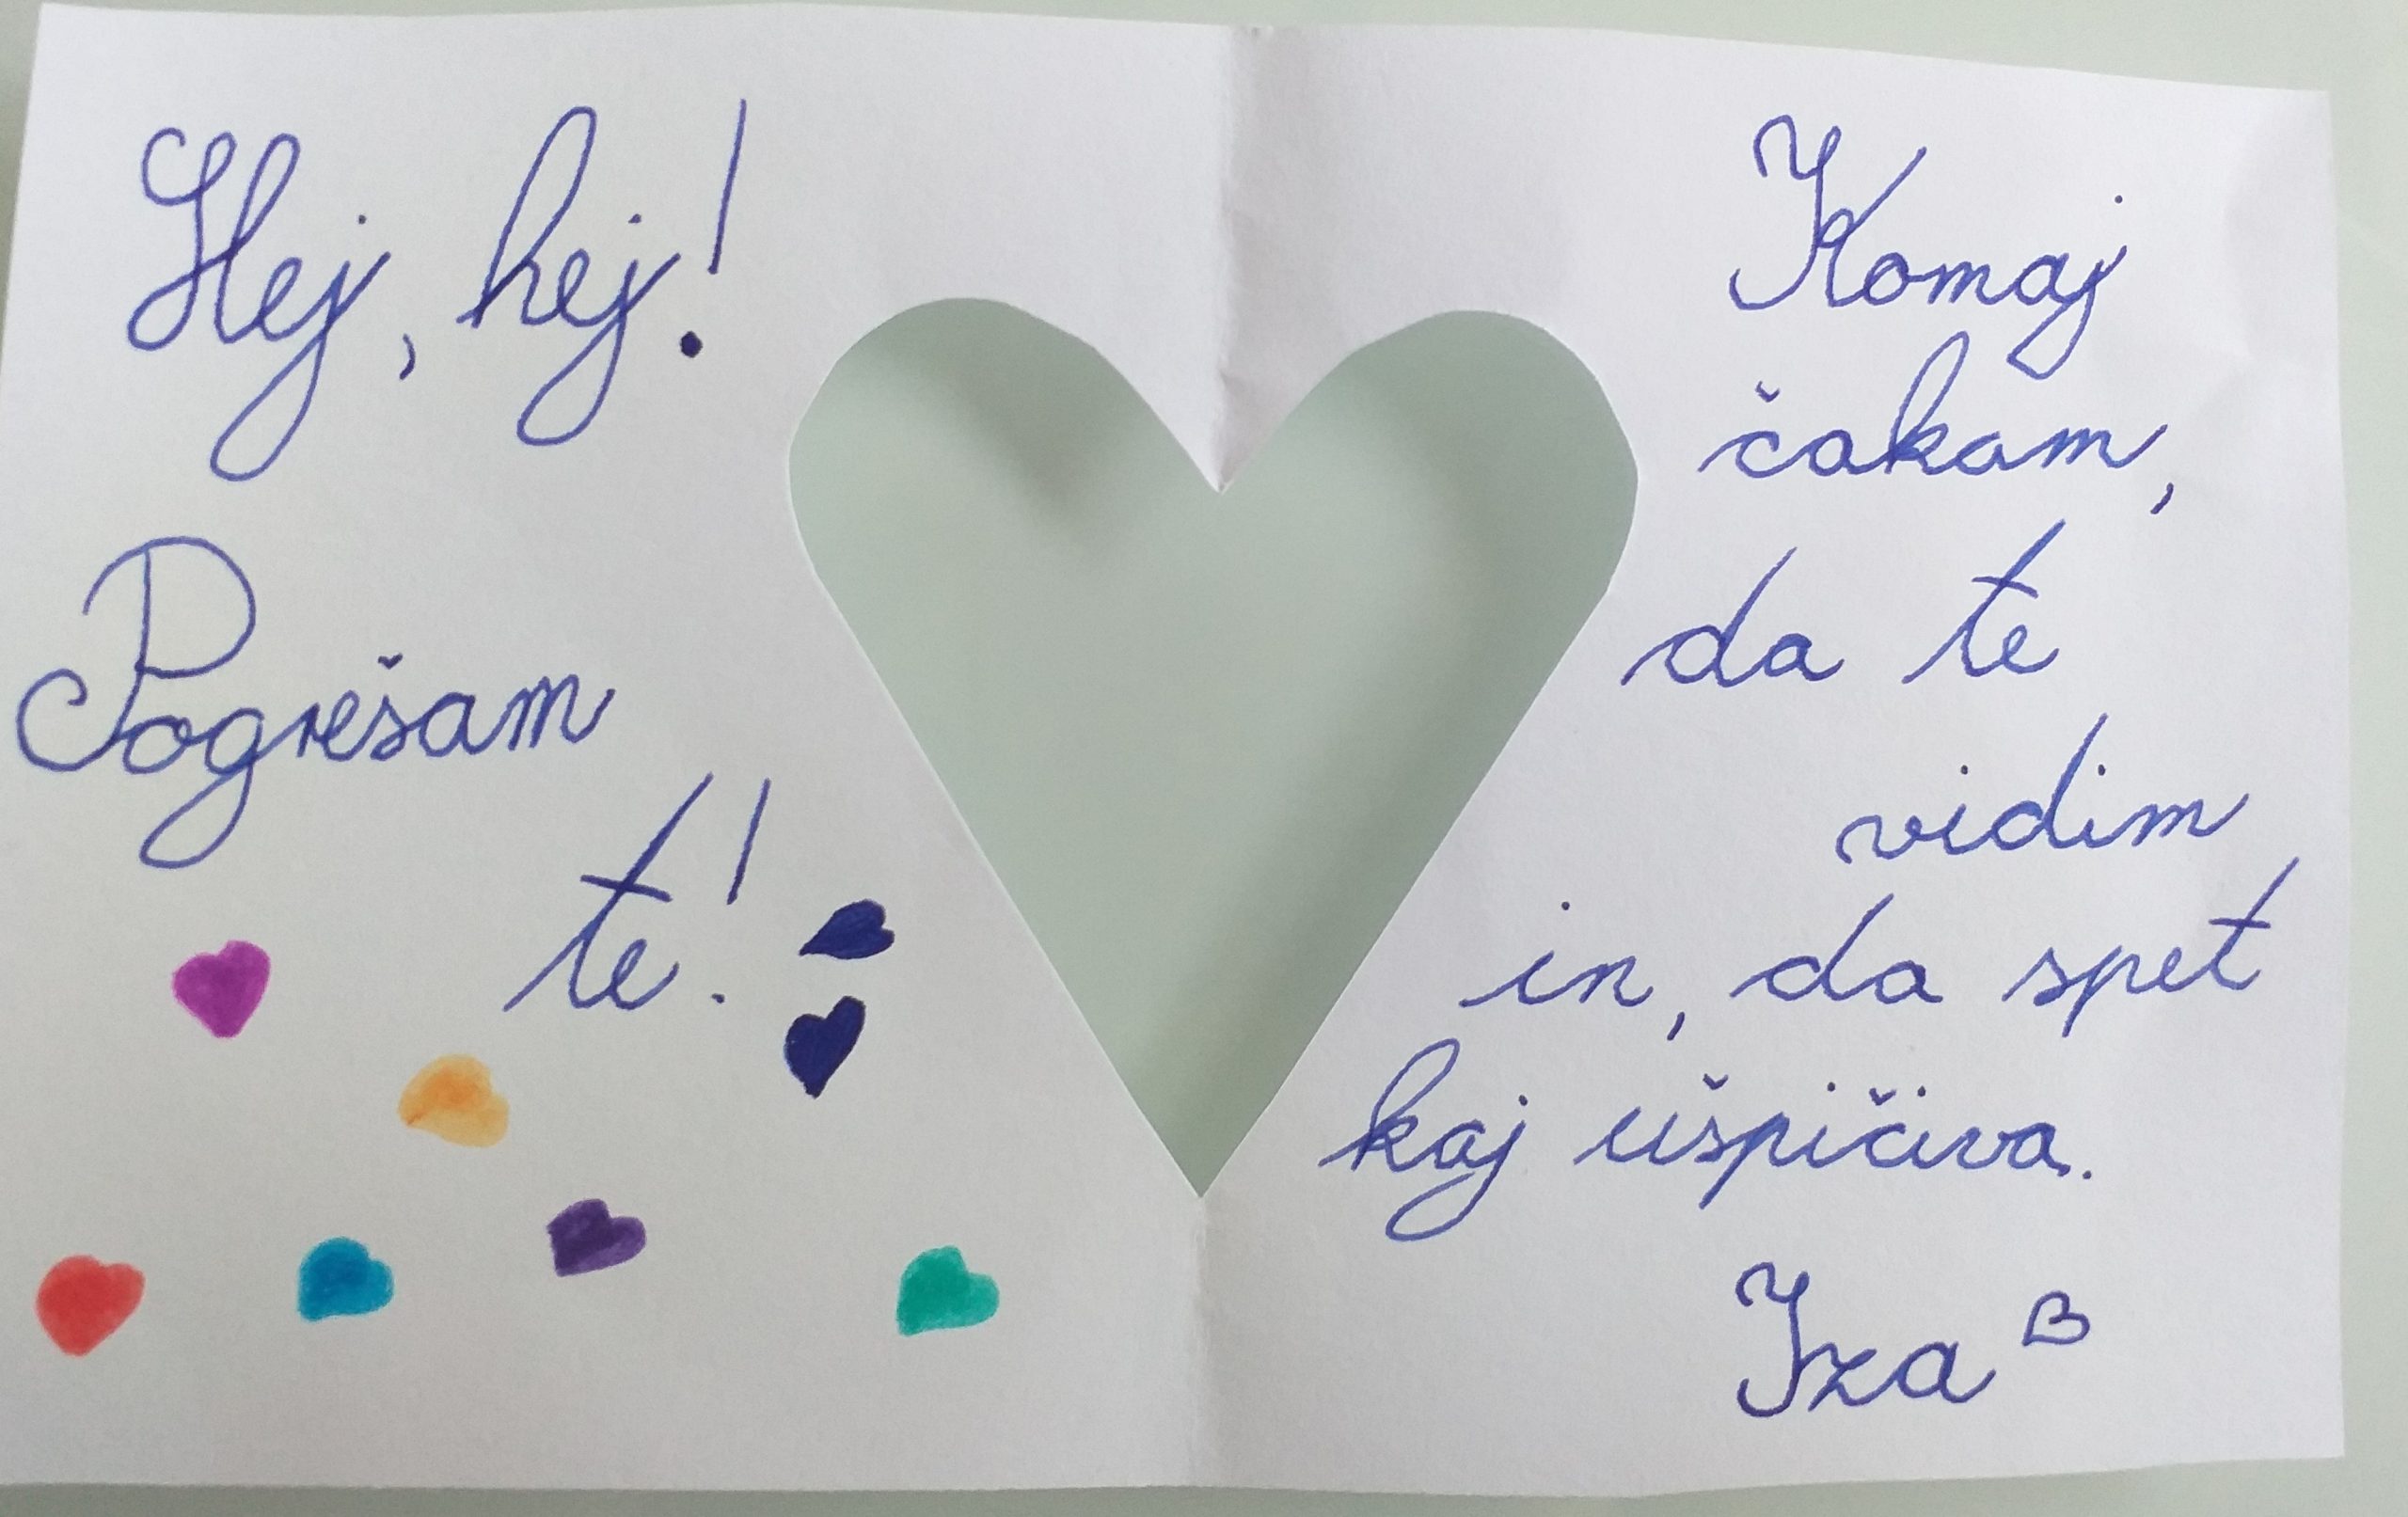 Hej, hej!
Pogrešam
te!
Komaj
čakam,
da te
vidim
in, da spet
kaj ušpičiva.
Iza